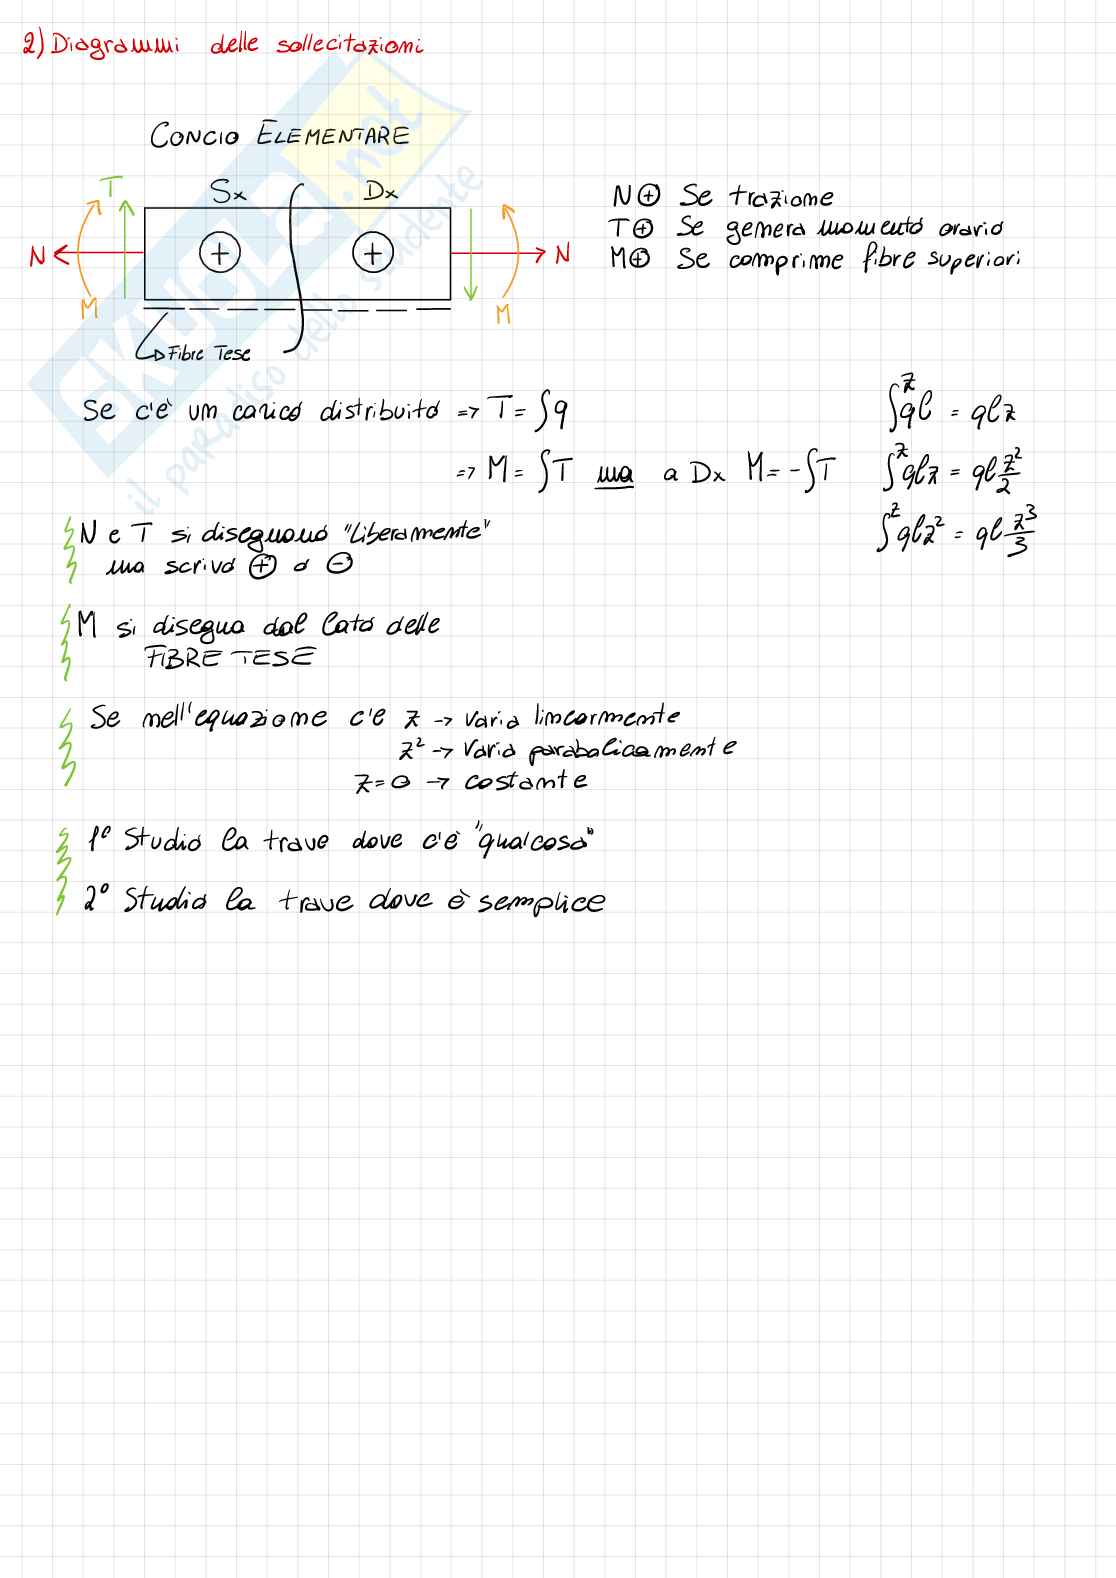 2) Diagrammi delle sollecitazioni
CONCIO ELEMENTARE
T Sx Dx
N + + N
M M
Fibre Tese
N⊕ Se trazione
T⊕ Se genera momento orario
M⊕ Se comprime fibre superiori
Se c'è un carico distribuito => T = ∫q
=> M = ∫T ma a Dx M = -∫T
∫^z ql = qlz
∫^z qlz = ql z²/2
∫^z qlz² = ql z³/3
N e T si disegnano "liberamente"
ma scrivo ⊕ o ⊖
M si disegna dal lato delle
FIBRE TESE
Se nell'equazione c'è z → varia linearmente
z² → varia parabolicamente
z=0 → costante
1° Studio la trave dove c'è "qualcosa"
2° Studio la trave dove è semplice
skuola.net
il paradiso dello studente